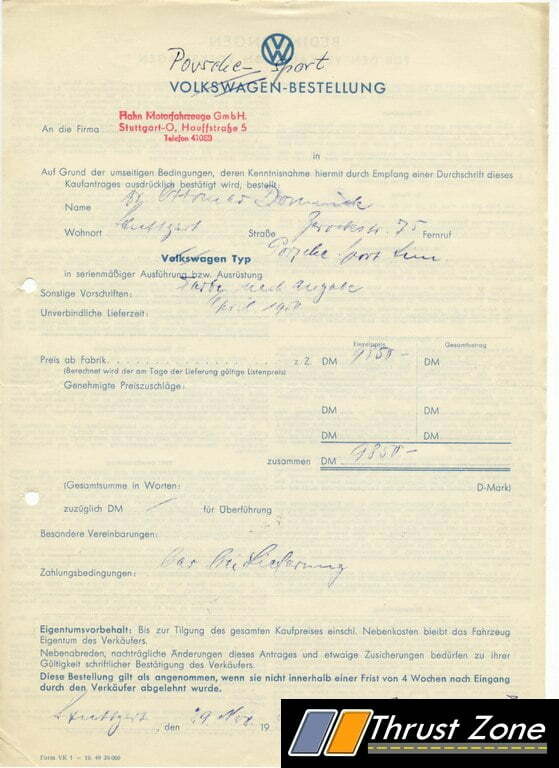 Porsche-Sport
VOLKSWAGEN-BESTELLUNG
Hahn Motorfahrzeuge GmbH.
An die Firma Stuttgart-O, Hauffstraße 5
Telefon 41083
in
Auf Grund der umseitigen Bedingungen, deren Kenntnisnahme hiermit durch Empfang einer Durchschrift dieses
Kaufantrages ausdrücklich bestätigt wird, bestellt:
Name Dr Ottomar Domnick
Wohnort Stuttgart Straße 75 Fernruf
Volkswagen Typ Porsche Sport
in serienmäßiger Ausführung bzw. Ausrüstung
Sonstige Vorschriften: Farbe nach Angabe
Unverbindliche Lieferzeit: April 1950
Einzelpreis Gesamtbetrag
Preis ab Fabrik z. Z. DM 9850- DM
(Berechnet wird der am Tage der Lieferung gültige Listenpreis)
Genehmigte Preiszuschläge:
DM DM
DM DM
zusammen DM 9850-
(Gesamtsumme in Worten: D-Mark)
zuzüglich DM / für Überführung
Besondere Vereinbarungen:
Zahlungsbedingungen: bar bei Lieferung
Eigentumsvorbehalt: Bis zur Tilgung des gesamten Kaufpreises einschl. Nebenkosten bleibt das Fahrzeug
Eigentum des Verkäufers.
Nebenabreden, nachträgliche Änderungen dieses Antrages und etwaige Zusicherungen bedürfen zu ihrer
Gültigkeit schriftlicher Bestätigung des Verkäufers.
Diese Bestellung gilt als angenommen, wenn sie nicht innerhalb einer Frist von 4 Wochen nach Eingang
durch den Verkäufer abgelehnt wurde.
Stuttgart, den 29 Nov. 19
Form VK 1 – 10. 49 25 000
Thrust Zone